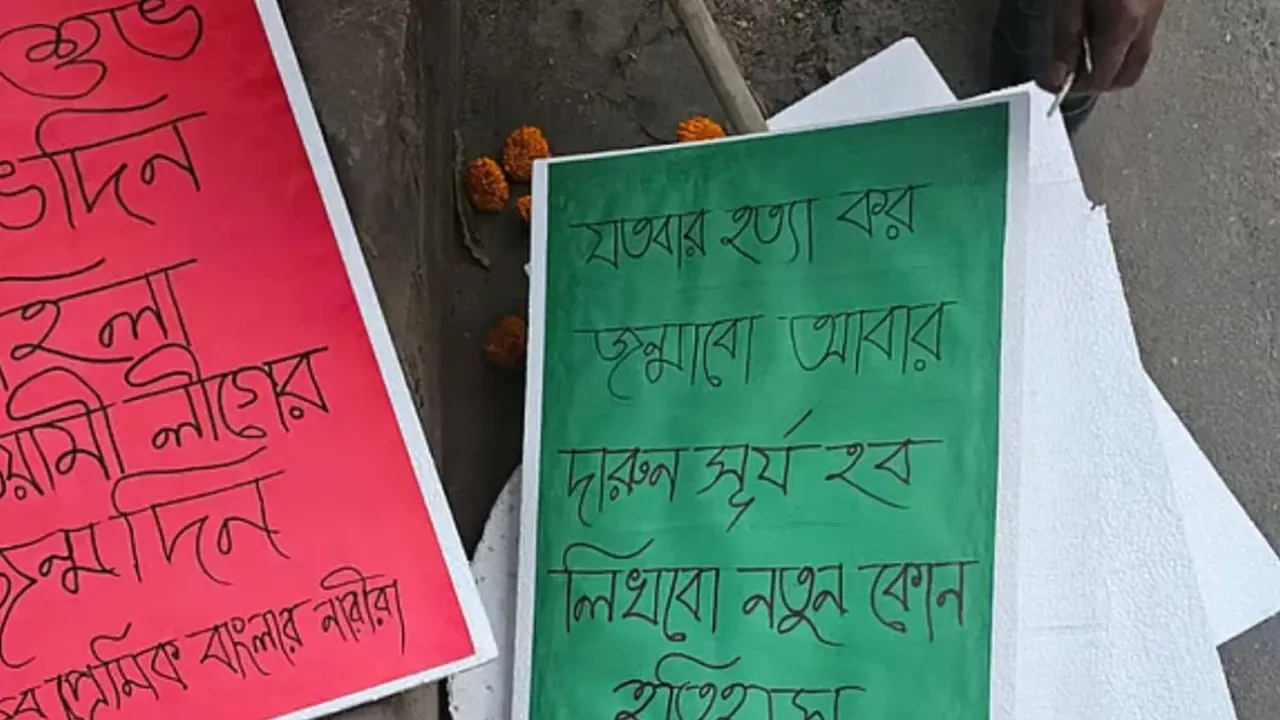 শুভ
দিন
লা
লীগের
জন্মদিন
প্রেমিক বাংলার নারীরা
যতবার হত্যা কর
জন্মাবো আবার
দারুন সূর্য হব
লিখবো নতুন কোন
ইতিহাস